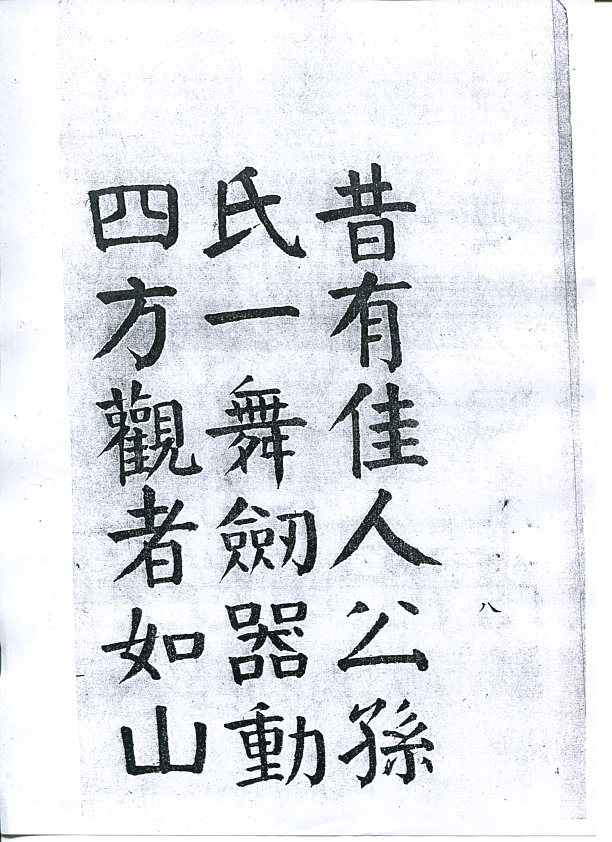 八
昔有佳人公孫
氏一舞劒器動
四方觀者如山